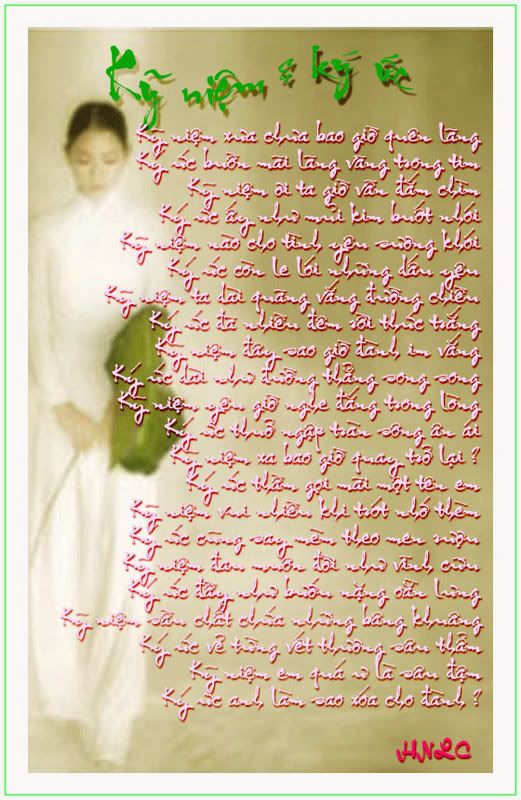 Kỹ niệm & ký ức
Kỹ niệm xưa chưa bao giờ quên lãng
Ký ức buồn mãi lãng vãng trong tim
Kỹ niệm ôi ta giờ vẫn đắm chìm
Ký ức ấy như mũi kim buốt nhói
Kỹ niệm nào cho tình yêu sương khói
Ký ức còn le lói những dấu yêu
Kỹ niệm ta dài quãng vắng đường chiều
Ký ức đã nhiều đêm rồi thức trắng
Kỹ niệm đây sao giờ đành im vắng
Ký ức dài như đường thẳng song song
Kỹ niệm yêu giờ nghe đắng trong lòng
Ký ức thuở ngập tràn sông ân ái
Kỹ niệm xa bao giờ quay trở lại ?
Ký ức thầm gọi mãi một tên em
Kỹ niệm vui nhiều khi trót nhớ thèm
Ký ức cũng say mèm theo men rượu
Kỹ niệm đau muôn đời như vĩnh cửu
Ký ức đầy như bướu nặng oằn lưng
Kỹ niệm sầu chất chứa những bâng khuâng
Ký ức về từng vết thương sâu thẳm
Kỹ niệm em quá ư là sâu đậm
Ký ức anh làm sao xóa cho đành ?
HNLC